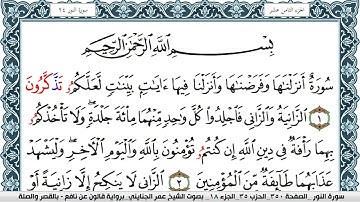 الجزء الثامن عشر
سورة النور ٢٤
بِسْمِ اللَّهِ الرَّحْمَٰنِ الرَّحِيمِ
سُورَةٌ أَنزَلْنَٰهَا وَفَرَضْنَٰهَا وَأَنزَلْنَا فِيهَا ءَايَٰتٍۭ بَيِّنَٰتٍ لَّعَلَّكُمُۥ تَذَّكَّرُونَ
١ الزَّانِيَةُ وَالزَّانِي فَاجْلِدُوا كُلَّ وَٰحِدٍ مِّنْهُمَا مِائَةَ جَلْدَةٍ وَلَا تَأْخُذْكُمُۥ
بِهِمَا رَأْفَةٌ فِي دِينِ اللَّهِ إِن كُنتُمُۥ تُؤْمِنُونَ بِاللَّهِ وَالْيَوْمِ الْأَخِرِ وَلْيَشْهَدْ
عَذَابَهُمَا طَائِفَةٌ مِّنَ الْمُؤْمِنِينَ ٢ الزَّانِي لَا يَنكِحُ إِلَّا زَانِيَةً أَوْ
سورة النور الصفحة ٣٥٠ الجزء ١٨ بصوت الشيخ عمر الجنايني برواية قالون عن نافع - بالقصر والصلة